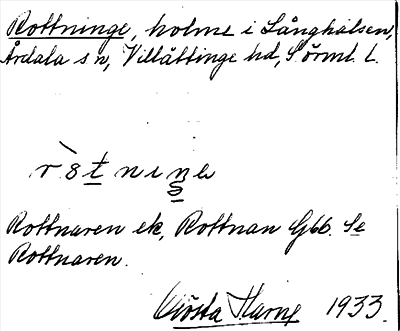 Rottninge, holme i Långhalsen,
Årdala sn, Villåttinge hd, Sörml. l.
Rottnaren ek, Rottnan Gbb. Se
Rottnaren.
Gösta Harne 1933.